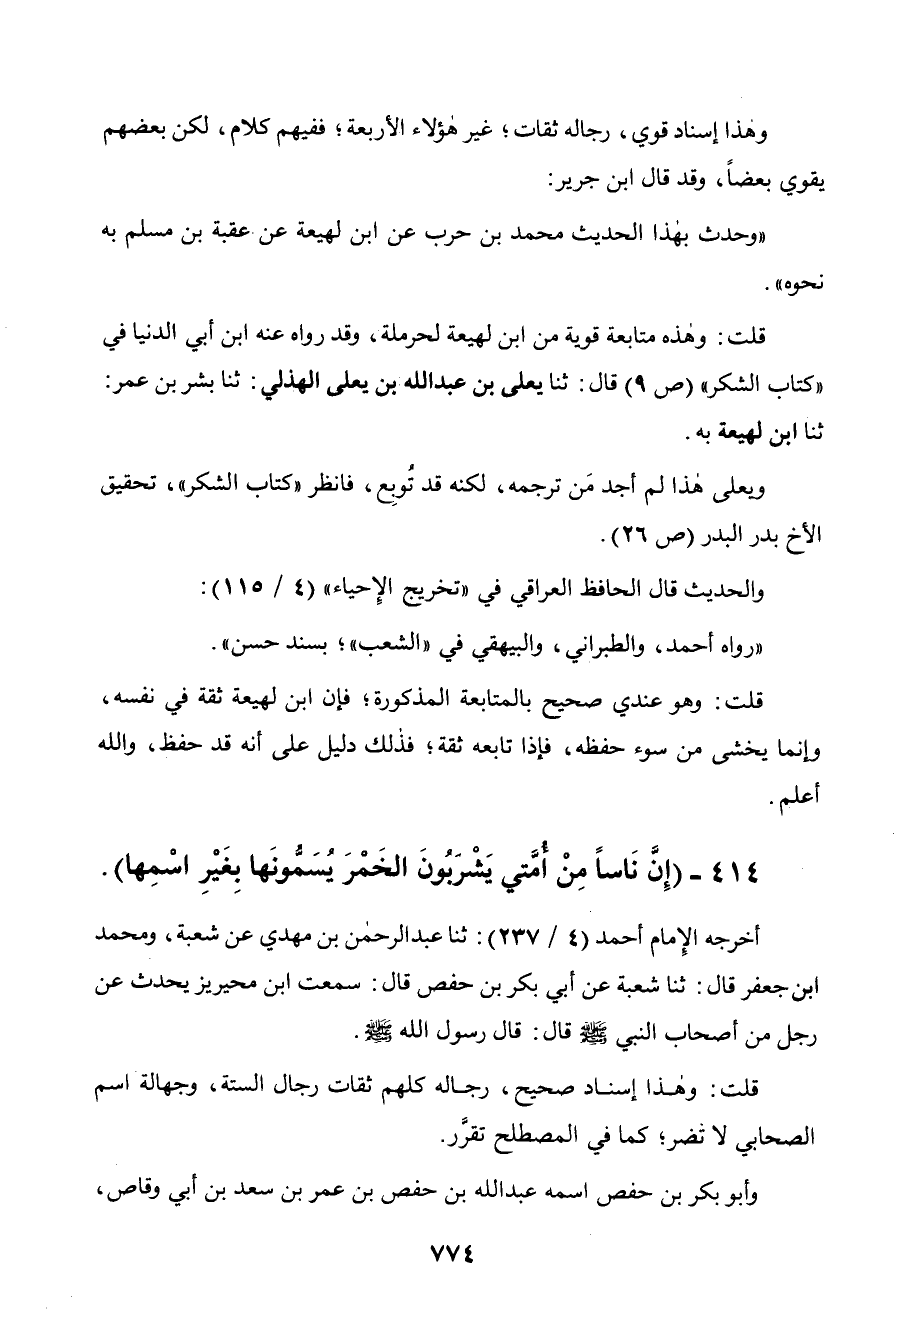 وهٰذا إسناد قوي، رجاله ثقات؛ غير هٰؤلاء الأربعة؛ ففيهم كلام، لكن بعضهم
يقوي بعضاً، وقد قال ابن جرير:
«وحدث بهٰذا الحديث محمد بن حرب عن ابن لهيعة عن عقبة بن مسلم به
نحوه».
قلت: وهٰذه متابعة قوية من ابن لهيعة لحرملة، وقد رواه عنه ابن أبي الدنيا في
«كتاب الشكر» (ص ٩) قال: ثنا يعلى بن عبدالله بن يعلى الهذلي: ثنا بشر بن عمر:
ثنا ابن لهيعة به.
ويعلى هٰذا لم أجد مَن ترجمه، لكنه قد تُوبِع، فانظر «كتاب الشكر»، تحقيق
الأخ بدر البدر (ص ٢٦).
والحديث قال الحافظ العراقي في «تخريج الإِحياء» (٤ / ١١٥):
«رواه أحمد، والطبراني، والبيهقي في «الشعب»؛ بسند حسن».
قلت: وهو عندي صحيح بالمتابعة المذكورة؛ فإن ابن لهيعة ثقة في نفسه،
وإنما يخشى من سوء حفظه، فإذا تابعه ثقة؛ فذٰلك دليل على أنه قد حفظ، والله
أعلم.
٤١٤ ـ (إِنَّ نَاساً مِنْ أُمَّتي يَشْرَبُونَ الخَمْرَ يُسَمُّونَها بِغَيْرِ اسْمِها).
أخرجه الإِمام أحمد (٤ / ٢٣٧): ثنا عبدالرحمٰن بن مهدي عن شعبة، ومحمد
ابن جعفر قال: ثنا شعبة عن أبي بكر بن حفص قال: سمعت ابن محيريز يحدث عن
رجل من أصحاب النبي ﷺ قال: قال رسول الله ﷺ.
قلت: وهٰذا إسناد صحيح، رجاله كلهم ثقات رجال الستة، وجهالة اسم
الصحابي لا تَضر؛ كما في المصطلح تقرَّر.
وأبو بكر بن حفص اسمه عبدالله بن حفص بن عمر بن سعد بن أبي وقاص،
٧٧٤